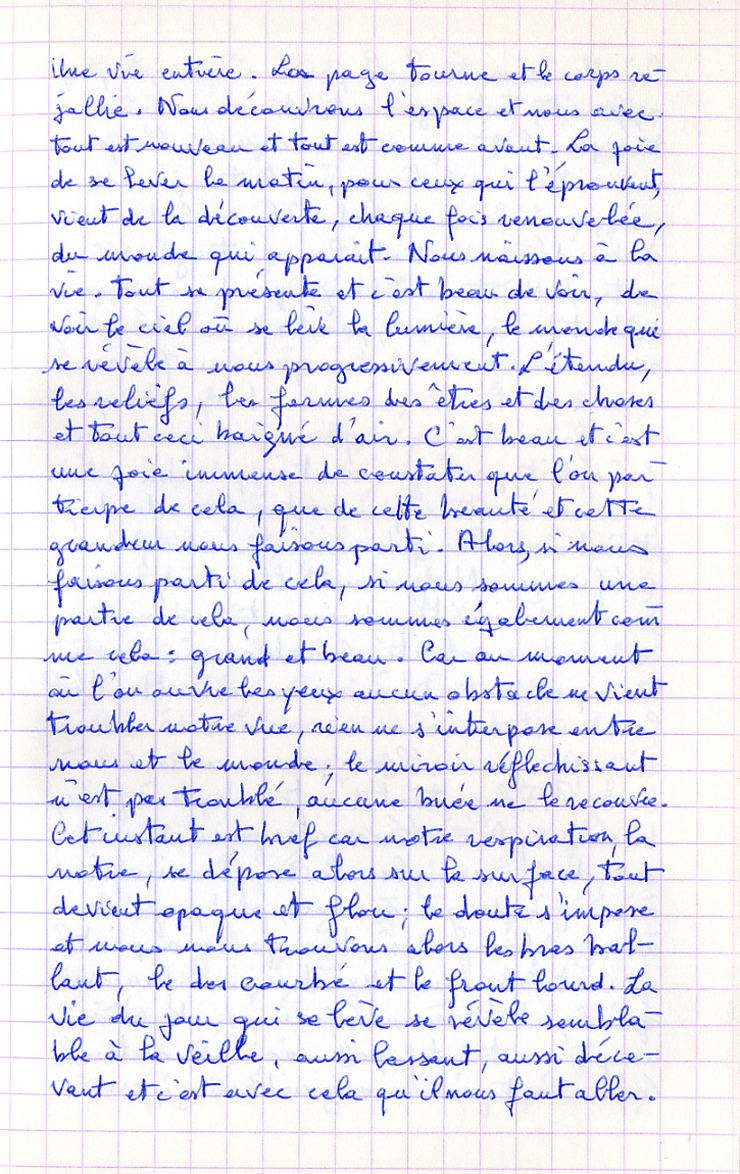 Une vie entière. La page tourne et le corps re-
jallie. Nous découvrons l'espace et nous avec.
tout est nouveau et tout est comme avant. La joie
de se lever le matin, pour ceux qui l'éprouvent,
vient de la découverte, chaque fois renouvelée,
du monde qui apparait. Nous naissons à la
vie. Tout se présente et c'est beau de voir, de
voir le ciel où se lève la lumière, le monde qui
se révèle à nous progressivement. L'étendu,
les reliefs, les formes des êtres et des choses
et tout ceci baigné d'air. C'est beau et c'est
une joie immense de constater que l'on par-
ticipe de cela, que de cette beauté et cette
grandeur nous faisons parti. Alors, si nous
faisons parti de cela, si nous sommes une
partie de cela, nous sommes également com
me cela : grand et beau. Car au moment
où l'on ouvre les yeux aucun obstacle ne vient
troubler notre vue, rien ne s'interpose entre
nous et le monde ; le miroir réflechissant
n'est pas troublé, aucune buée ne le recouvre.
Cet instant est bref car notre respiration, la
notre, se dépose alors sur la surface, tout
devient opaque et flou ; le doute s'impose
et nous nous trouvons alors les bras bal-
lant, le dos courbé et le front lourd. La
vie du jour qui se lève se révèle sembla-
ble à la veille, aussi lassant, aussi déce-
vant et c'est avec cela qu'il nous faut aller.